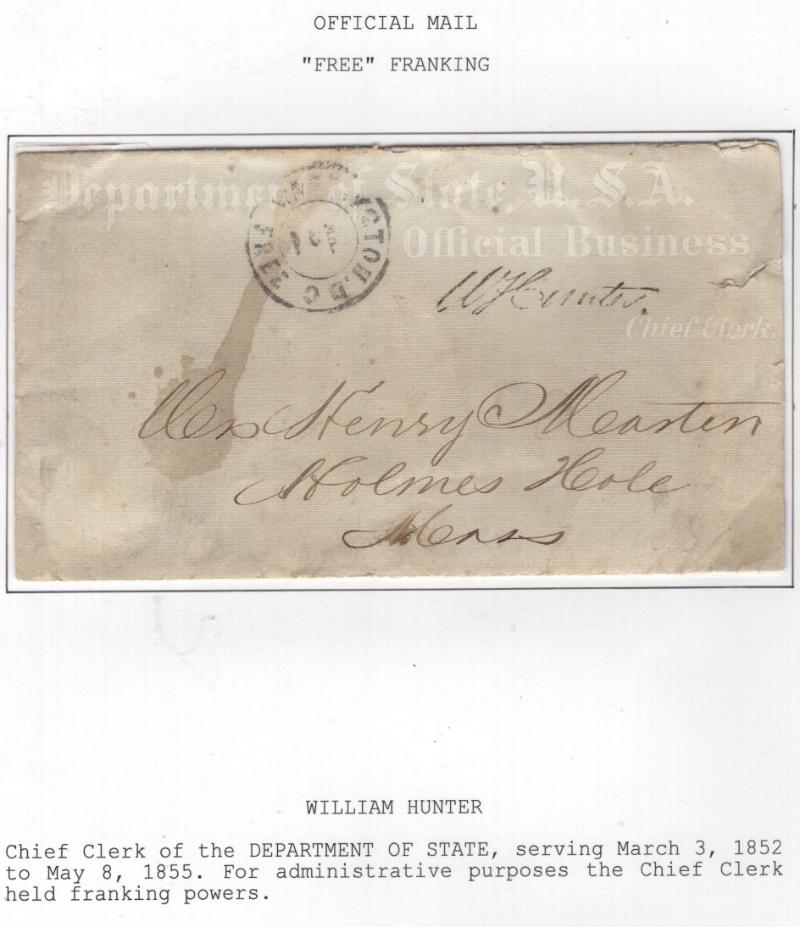 OFFICIAL MAIL
"FREE" FRANKING
Department of State, U.S.A.
Official Business
WASHINGTON. D.C.
FREE
W Hunter.
Chief Clerk.
Mrs Henry Martin
Holmes Hole
Mass
WILLIAM HUNTER
Chief Clerk of the DEPARTMENT OF STATE, serving March 3, 1852
to May 8, 1855. For administrative purposes the Chief Clerk
held franking powers.